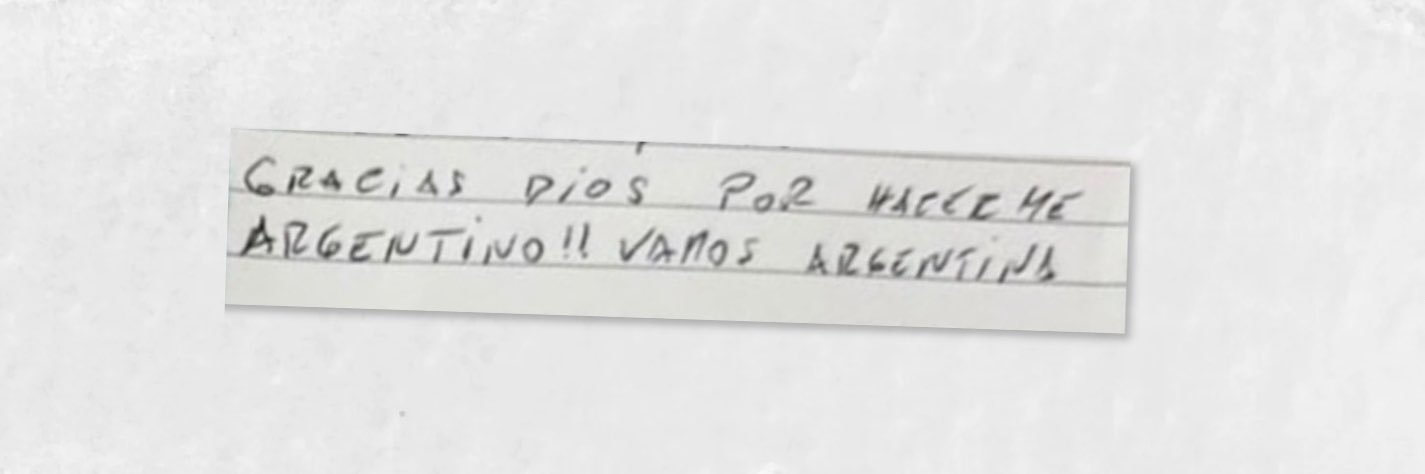 GRACIAS DIOS POR HACERME
ARGENTINO!! VAMOS ARGENTINA